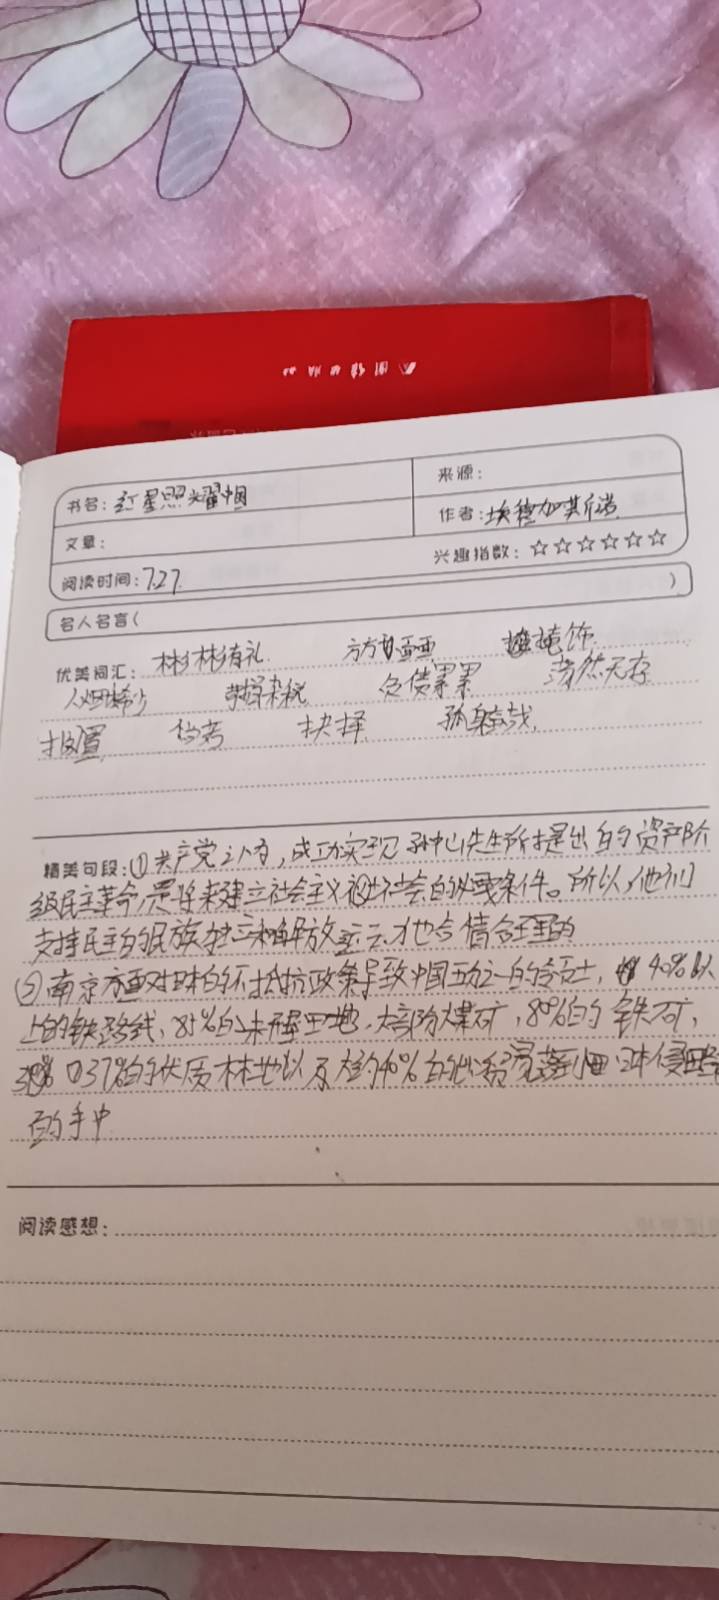 书名：红星照耀中国
来源：
作者：埃德加·斯诺
文章：
兴趣指数：☆☆☆☆☆☆
阅读时间：7.27
名人名言（ ）
优美词汇：彬彬有礼 方方面面 掩饰
人烟稀少 苛捐杂税 负债累累 荡然无存
抉择
精美句段：①共产党认为，成功实现孙中山先生所提出的资产阶
级民主革命，是将来建立社会主义社会的必要条件。所以，他们
支持民主的民族独立和解放运动才也合情合理的
②南京方面对日本的不抵抗政策导致中国五分之一的领土，40%以
上的铁路线，85%的未垦田地，大部分煤矿，80%的铁矿，
37%的优质林地以及大约40%的出口 日本侵略
的手中
阅读感想：